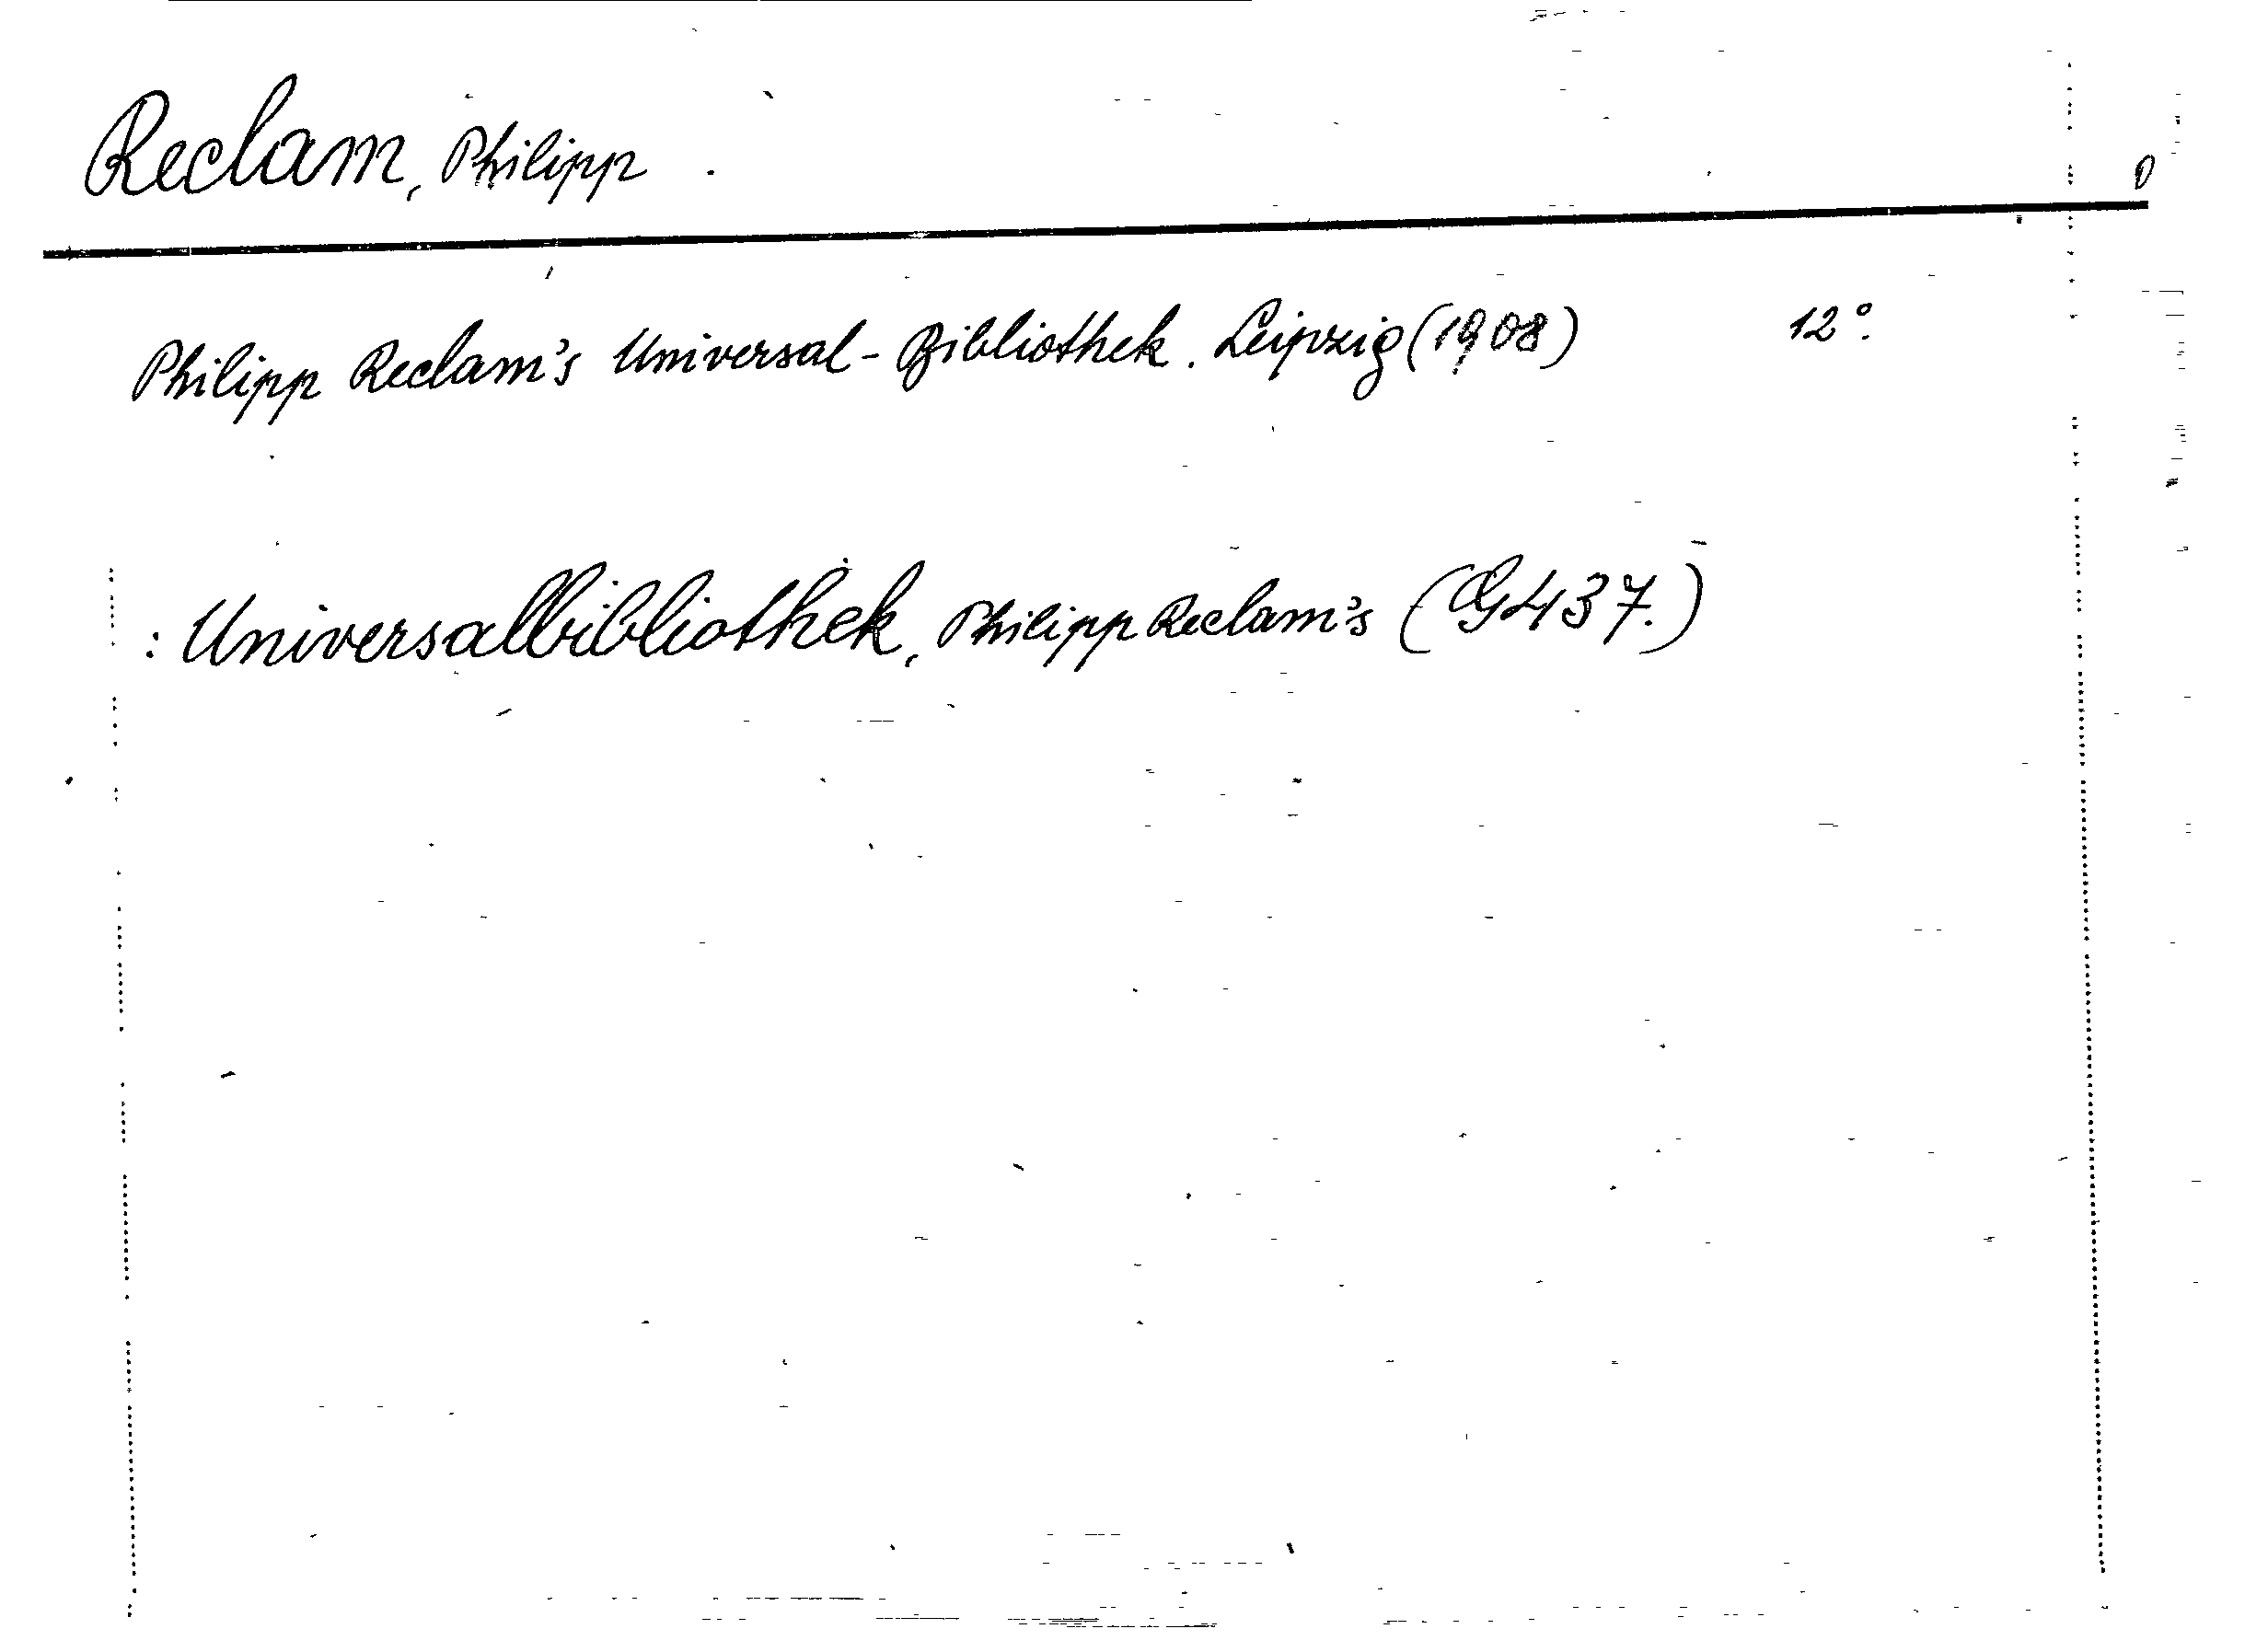 Reclam, Philipp.
Philipp Reclam's Universal-Bibliothek. Leipzig (1908) 12°.
: Universalbibliothek, Philipp Reclam's (G437.)